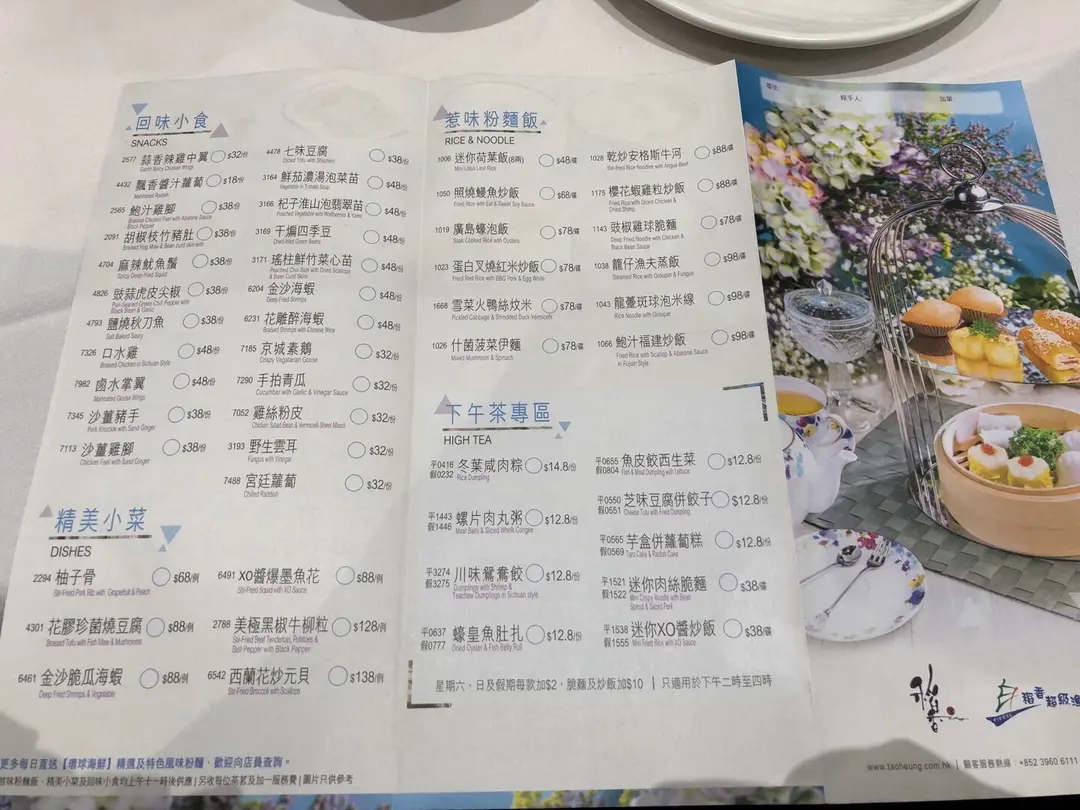 回味小食
SNACKS
2577 蒜香辣雞中翼 $32/份
Garlic Spicy Chicken Wings
4432 飄香醬汁蘿蔔 $18/份
Marinated Radish
2565 鮑汁雞腳 $38/份
Braised Chicken Feet with Abalone Sauce
Black Pepper
2091 胡椒枝竹豬肚 $38/份
4704 麻辣魷魚鬚 $38/份
Spicy Deep-fried Squid
4826 豉蒜虎皮尖椒 $38/份
Pan-Seared Green Chili Pepper with
Black Bean & Garlic
4793 鹽燒秋刀魚 $38/份
Salt Baked Saury
7326 口水雞 $48/份
Braised Chicken in Sichuan Style
7982 鹵水掌翼 $48/份
Marinated Goose Wings
7345 沙薑豬手 $38/份
Pork Knuckle with Sand Ginger
7113 沙薑雞腳 $38/份
Chicken Feet with Sand Ginger
4478 七味豆腐 $38/份
Diced Tofu with Shichimi
3164 鮮茄濃湯泡菜苗 $48/份
Vegetable in Tomato Soup
3166 杞子淮山泡翡翠苗 $48/份
Poached Vegetable with Wolfberries & Yams
3169 干煸四季豆 $48/份
Dried-fried Green Beans
3171 瑤柱鮮竹菜心苗 $48/份
Poached Choi-Sum with Dried Scallops
& Bean Curd Skins
6204 金沙海蝦 $48/份
Deep-Fried Shrimps
6231 花雕醉海蝦 $48/份
Braised Shrimps with Chinese Wine
7185 京城素鵝 $32/份
Crispy Vegetarian Goose
7290 手拍青瓜 $32/份
Cucumber with Garlic & Vinegar Sauce
7052 雞絲粉皮 $32/份
Chicken Salad Bean & Vermicelli Sheet Mixed
3193 野生雲耳 $32/份
Fungus with Vinegar
7488 宮廷蘿蔔 $32/份
Chilled Raddish
精美小菜
DISHES
2294 柚子骨 $68/例
Stir-Fried Pork Rib with Grapefruit & Peach
4301 花膠珍菌燒豆腐 $88/例
Braised Tofu with Fish Maw & Mushrooms
6461 金沙脆瓜海蝦 $88/例
Deep Fried Shrimps & Vegetable
6491 XO醬爆墨魚花 $88/例
Stir-Fried Squid with XO Sauce
2788 美極黑椒牛柳粒 $128/例
Stir-Fried Beef Tenderloin, Potatoes &
Bell Pepper with Black Pepper
6542 西蘭花炒元貝 $138/例
Stir-Fried Broccoli with Scallops
更多每日直送【環球海鮮】精選及特色風味粉麵，歡迎向店員查詢。
惹味粉麵飯、精美小菜及回味小食均上午十一時後供應 | 另收每位茶芥及加一服務費 | 圖片只供參考
惹味粉麵飯
RICE & NOODLE
1006 迷你荷葉飯(8兩) $48/碟
Mini Lotus Leaf Rice
1050 照燒鰻魚炒飯 $68/碟
Fried Rice with Eel & Sweet Soy Sauce
1019 廣島蠔泡飯 $78/碟
Soak Cooked Rice with Oysters
1023 蛋白叉燒紅米炒飯 $78/碟
Fried Red Rice with BBQ Pork & Egg White
1668 雪菜火鴨絲炆米 $78/碟
Pickled Cabbage & Shredded Duck Vermicelli
1026 什菌菠菜伊麵 $78/碟
Mixed Mushroom & Spinach
1028 乾炒安格斯牛河 $88/碟
Stir-Fried Rice Noodles with Angus Beef
1175 櫻花蝦雞粒炒飯 $88/碟
Fried Rice with Diced Chicken &
Dried Shrimp
1143 豉椒雞球脆麵 $78/碟
Deep Fried Noodle with Chicken &
Black Bean Sauce
1038 籠仔漁夫蒸飯 $98/碟
Steamed Rice with Grouper & Fungus
1043 龍躉斑球泡米線 $98/碟
Rice Noodle with Grouper
1066 鮑汁福建炒飯 $98/碟
Fried Rice with Scallop & Abalone Sauce
in Fujian Style
下午茶專區
HIGH TEA
平0416 假0232 冬葉咸肉粽 $14.8/份
Rice Dumpling
平1443 假1446 螺片肉丸粥 $12.8/份
Meat Balls & Sliced Whelk Congee
平3274 假3275 川味鴛鴦餃 $12.8/份
Dumplings with Shrimp &
Teachew Dumplings in Sichuan style
平0637 假0777 蠔皇魚肚扎 $12.8/份
Dried Oyster & Fish Belly Roll
平0655 假0804 魚皮餃西生菜 $12.8/份
Fish & Meat Dumpling with Lettuce
平0550 假0551 芝味豆腐併餃子 $12.8/份
Cheese Tofu with Fried Dumpling
平0565 假0569 芋盒併蘿蔔糕 $12.8/份
Taro Cake & Radish Cake
平1521 假1522 迷你肉絲脆麵 $38/碟
Mini Crispy Noodle with Bean
Sprout & Sliced Pork
平1538 假1555 迷你XO醬炒飯 $38/碟
Mini Fried Rice with XO Sauce
星期六、日及假期每款加$2、脆麵及炒飯加$10 | 只適用於下午二時至四時
檯號:
經手人:
加單:
稻香
稻香超級漁
www.taoheung.com.hk | 顧客服務熱線：+852 3960 6111